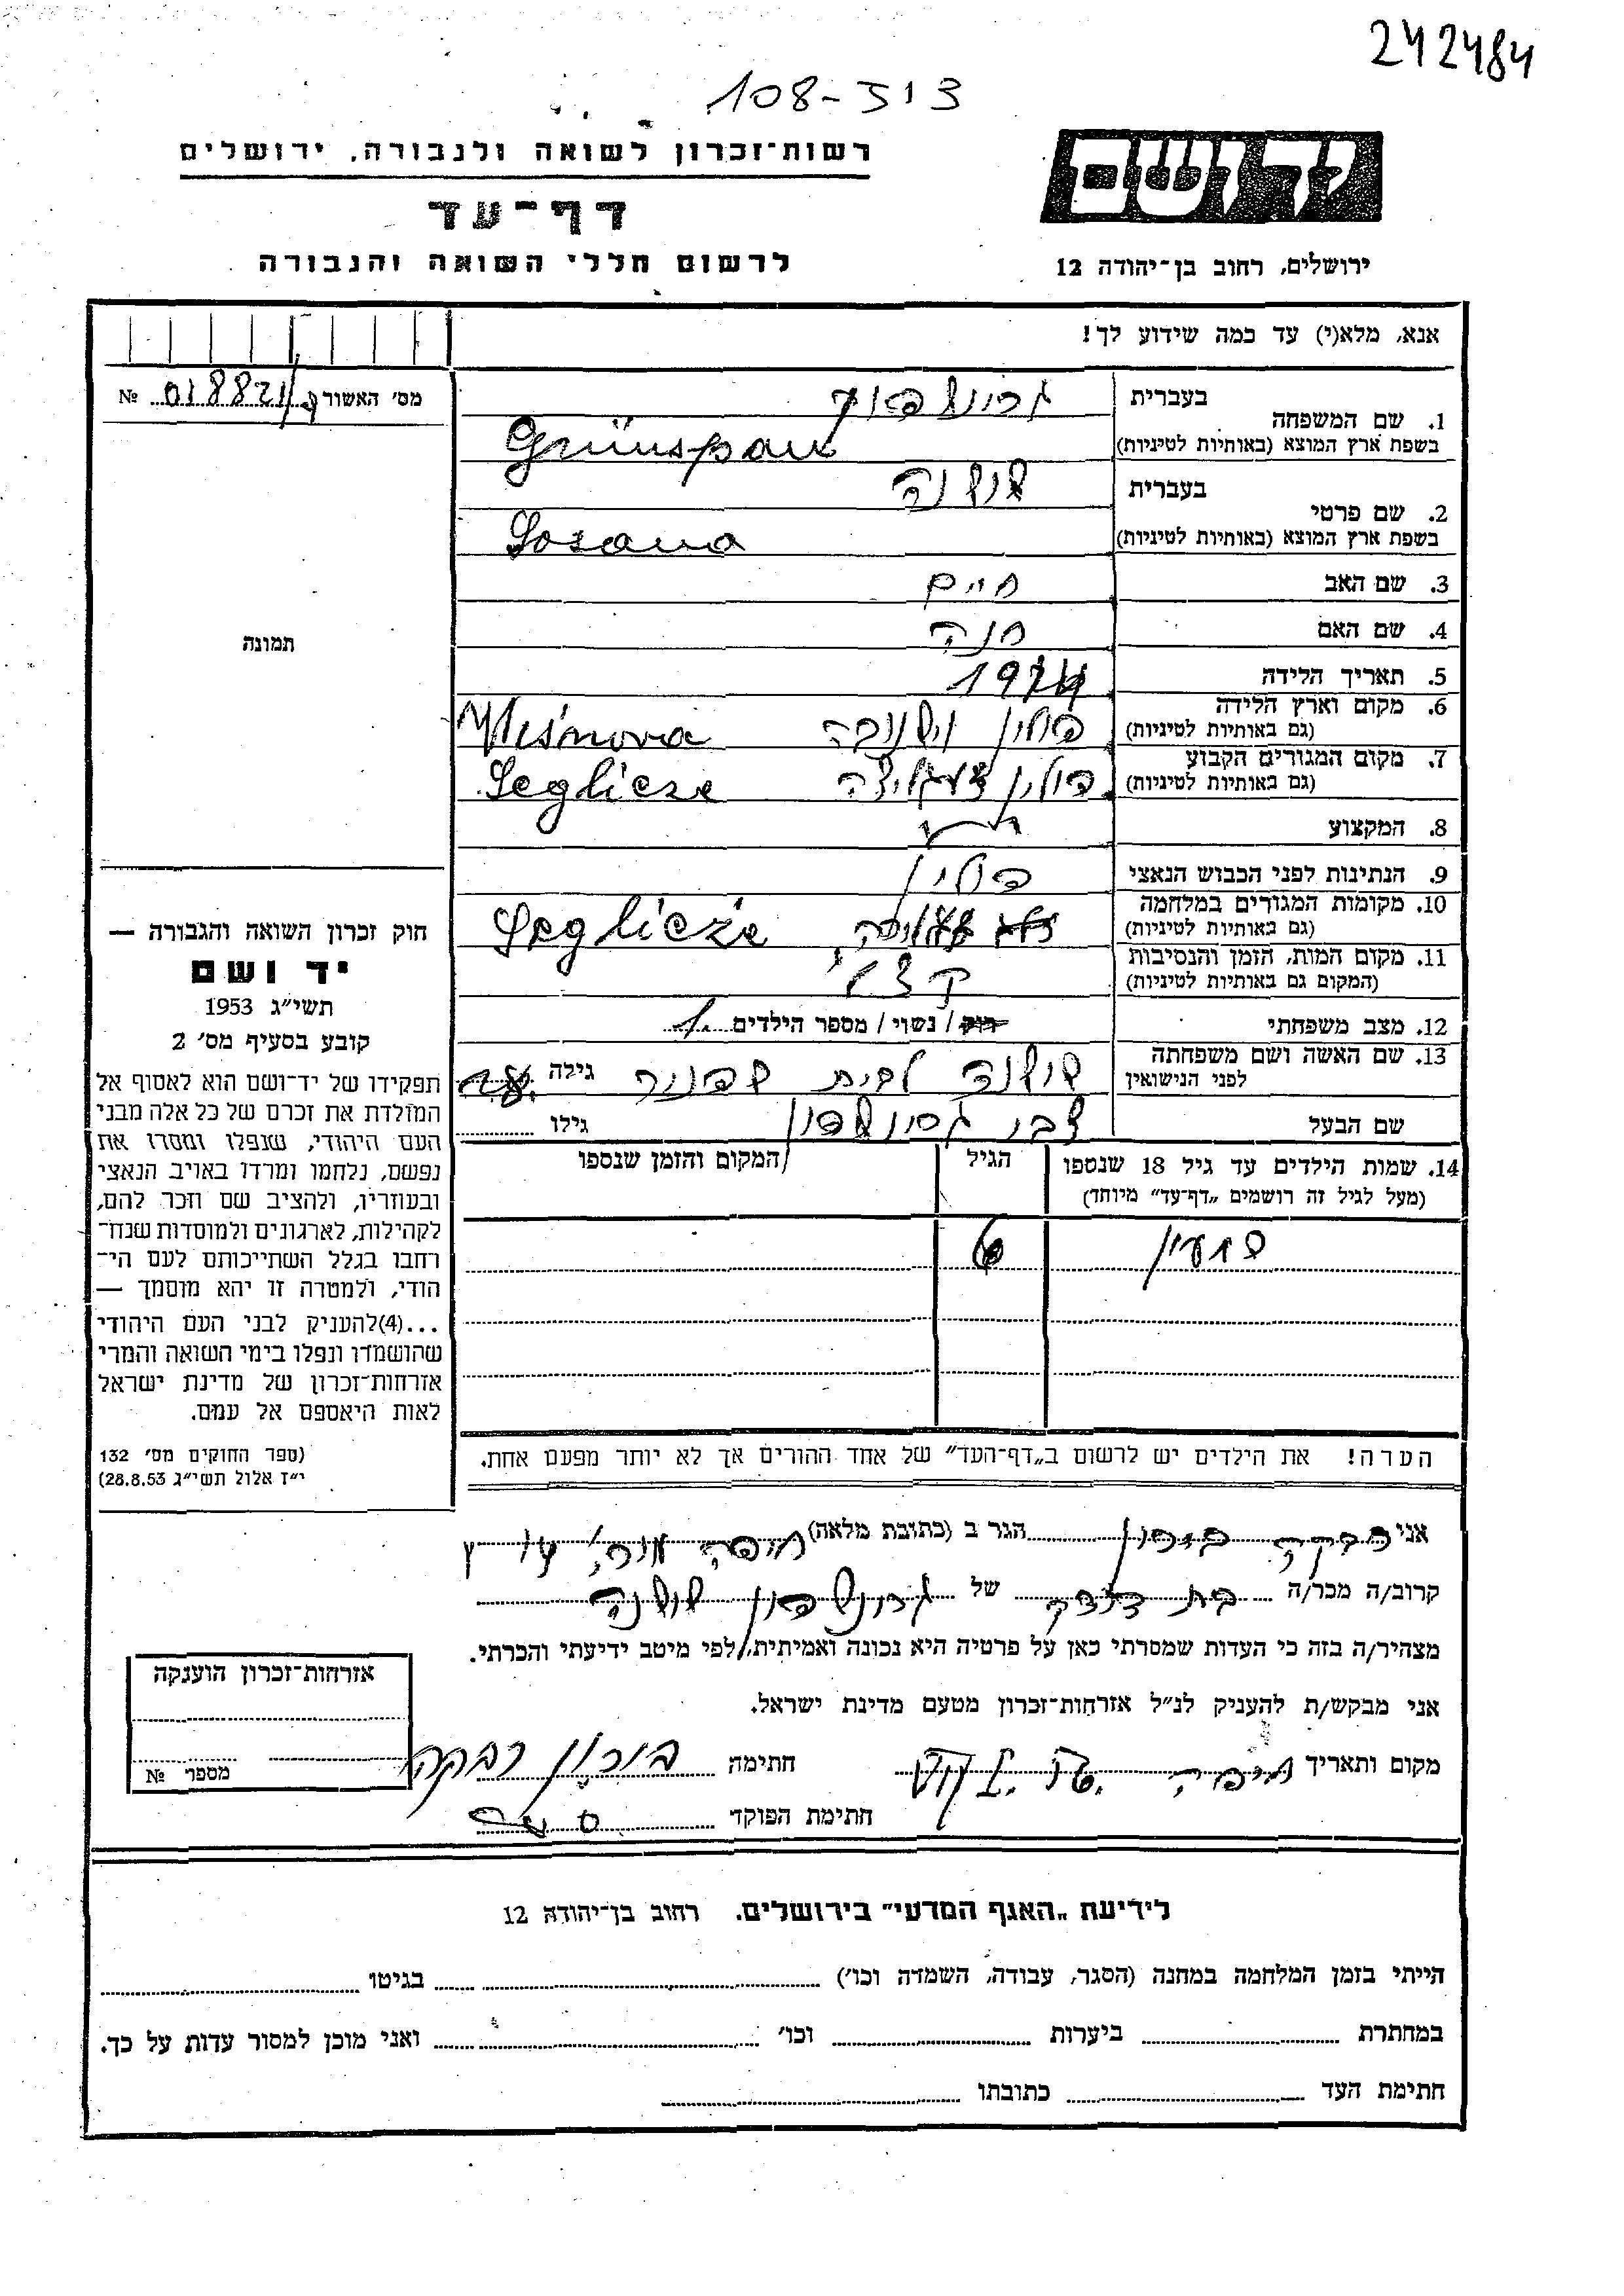 242484
108-313
רשות־זכרון לשואה ולגבורה, ירושלים
יד ושם
דף־עד
לרשום חללי השואה והגבורה
ירושלים, רחוב בן־יהודה 12
אנא, מלא(י) עד כמה שידוע לך!
מס׳ האשור 018821 №
בעברית
1. שם המשפחה
בשפת ארץ המוצא (באותיות לטיניות) Grünspan
בעברית שושנה
2. שם פרטי
בשפת ארץ המוצא (באותיות לטיניות) Sosana
3. שם האב חיים
4. שם האם חנה
5. תאריך הלידה
6. מקום וארץ הלידה
(גם באותיות לטיניות) פולין וישנובה Wiśnova
7. מקום המגורים הקבוע
(גם באותיות לטיניות) פולין Seglicze
8. המקצוע
9. הנתינות לפני הכבוש הנאצי פולין
10. מקומות המגורים במלחמה
(גם באותיות לטיניות) Segliċże
11. מקום המות, הזמן והנסיבות
(המקום גם באותיות לטיניות)
12. מצב משפחתי רוק / נשוי / מספר הילדים 1
13. שם האשה ושם משפחתה
לפני הנישואין שושנה לבית שפניר גילה
שם הבעל צבי גרונשפון גילו
14. שמות הילדים עד גיל 18 שנספו
(מעל לגיל זה רושמים „דף־עד״ מיוחד)
הגיל
המקום והזמן שנספו
שמעון 6
הערה! את הילדים יש לרשום ב„דף־העד״ של אחד ההורים אך לא יותר מפעם אחת.
תמונה
חוק זכרון השואה והגבורה —
יד ושם
תשי״ג 1953
קובע בסעיף מס׳ 2
תפקידו של יד־ושם הוא לאסוף אל
המולדת את זכרם של כל אלה מבני
העם היהודי, שנפלו ומסרו את
נפשם, נלחמו ומרדו באויב הנאצי
ובעוזריו, ולהציב שם וזכר להם,
לקהילות, לארגונים ולמוסדות שנח־
רבו בגלל השתייכותם לעם הי־
הודי, ולמטרה זו יהא מוסמך —
...(4)להעניק לבני העם היהודי
שהושמדו ונפלו בימי השואה והמרי
אזרחות־זכרון של מדינת ישראל
לאות היאספם אל עמם.
(ספר החוקים מס׳ 132
י״ז אלול תשי״ג 28.8.53)
אני רבקה בירון הגר ב (כתובת מלאה) חיפה
קרוב/ה מכר/ה בת דודה של גרונשפון שושנה
מצהיר/ה בזה כי העדות שמסרתי כאן על פרטיה היא נכונה ואמיתית, לפי מיטב ידיעתי והכרתי.
אני מבקש/ת להעניק לנ״ל אזרחות־זכרון מטעם מדינת ישראל.
מקום ותאריך חיפה חתימה בירון רבקה
חתימת הפוקד
אזרחות־זכרון הוענקה
מספר №
לידיעת „האגף המדעי״ בירושלים. רחוב בן־יהודה 12
הייתי בזמן המלחמה במחנה (הסגר, עבודה, השמדה וכו׳) בגיטו
במחתרת ביערות וכו׳ ואני מוכן למסור עדות על כך.
חתימת העד כתובתו